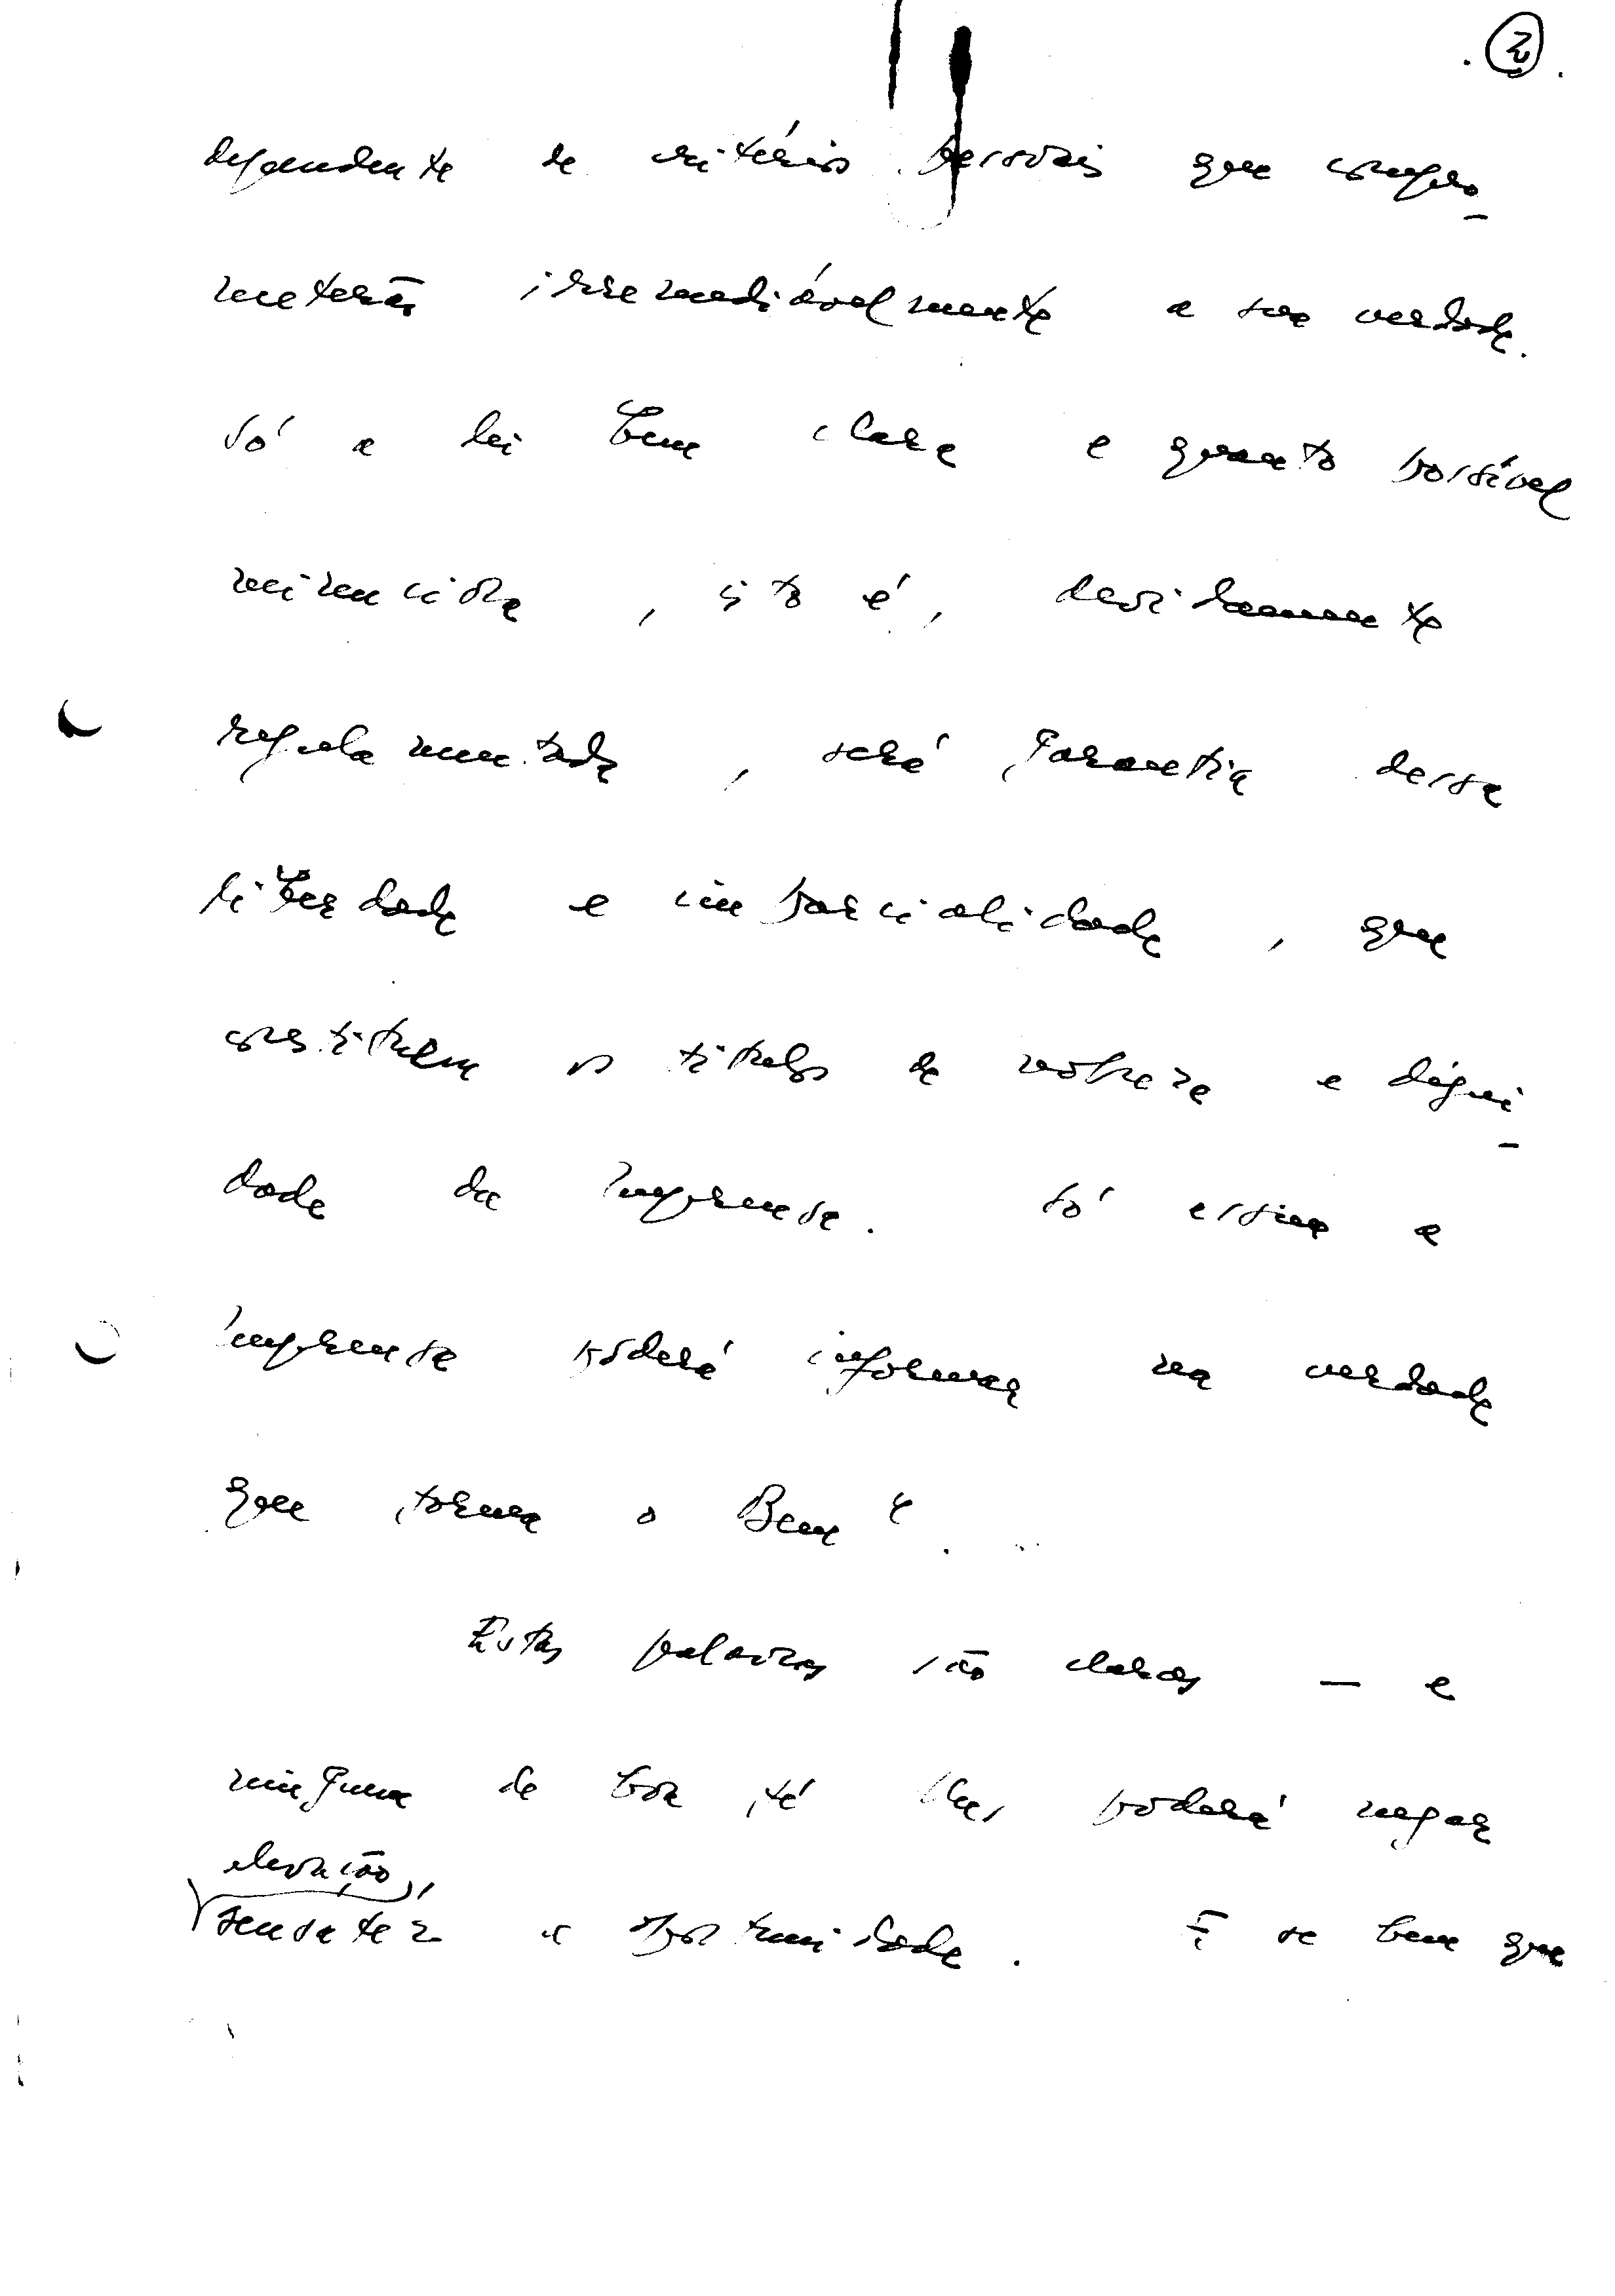 2
dependente de critérios pessoais que compro-
meterão irremediávelmente a sua verdade.
Só a lei bem clara e quanto possível
minuciosa, isto é, devidamente
regulamentada, será garantia dessa
liberdade e imparcialidade, que
constituem os titulos de nobreza e digni-
dade da Imprensa. Só assim a
Imprensa poderá informar na verdade
que forma o Bem".
Estas palavras são claras — e
ninguem de boa fé lhes poderá negar
elevação,
sensatez e oportunidade. E se bem que